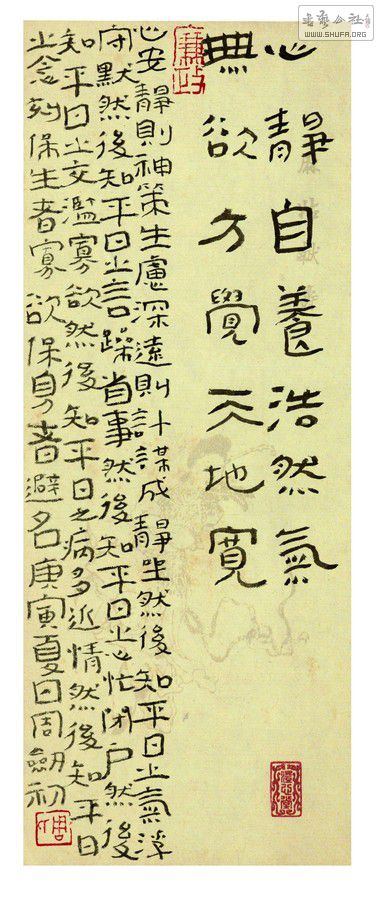 书艺公社
WWW.SHUFA.ORG
心靜自養浩然氣
無欲方覺天地寬
廉政
心安靜則神策生慮深遠則計謀成靜坐然後知平日之氣浮
守默然後知平日之言躁省事然後知平日之心忙閉户然後
知平日之交濫寡欲然後知平日之病多近情然後知平日
之念刻保生者寡欲保身者避名庚寅夏日周劍初